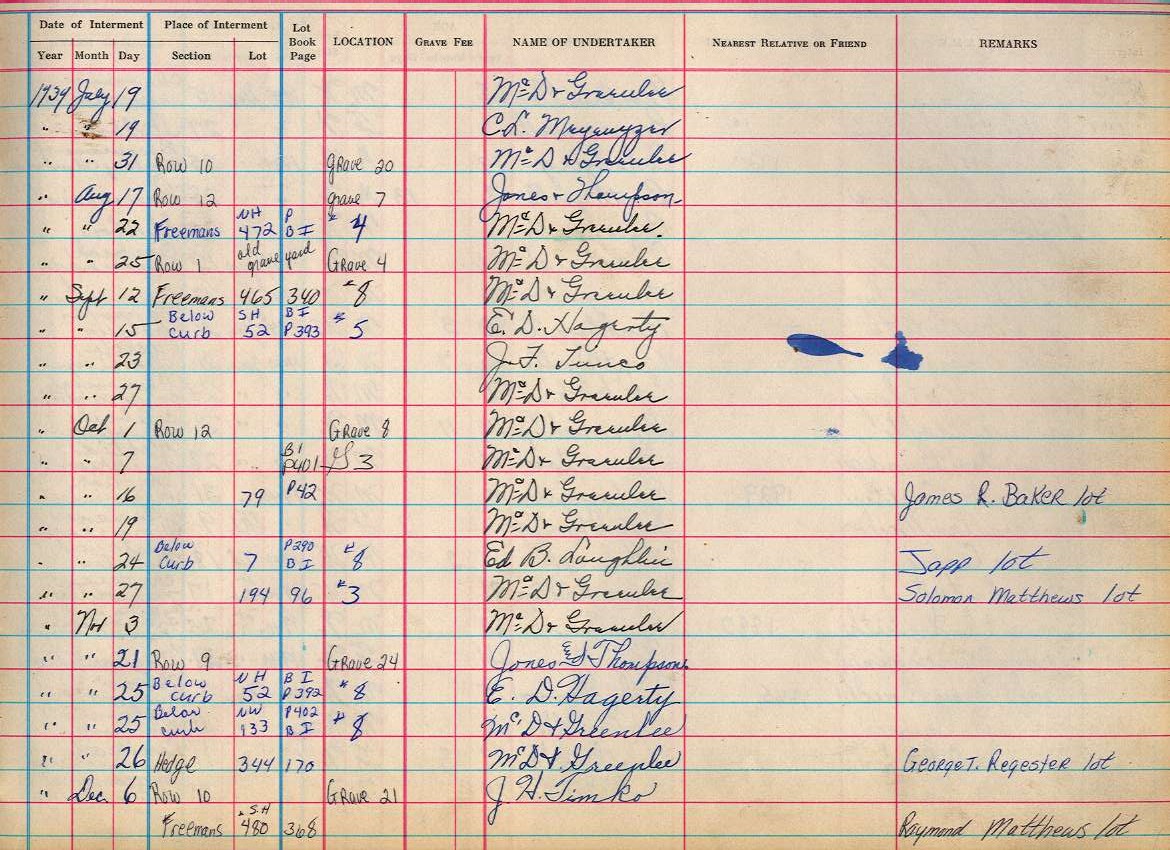 Date of Interment Place of Interment Lot Book Page LOCATION GRAVE FEE NAME OF UNDERTAKER NEAREST RELATIVE OR FRIEND REMARKS
Year Month Day Section Lot
1939 July 19 McD & Greenlee
" " 19 C.L.
" " 31 Row 10 Grave 20 McD & Greenlee
" Aug 17 Row 12 grave 7 Jones & Thompson
" " 22 Freemans NH 472 P B I # 4 McD & Greenlee.
" " 25 Row 1 old grave yard Grave 4 McD & Greenlee
" Sept 12 Freemans 465 340 # 8 McD & Greenlee
" " 15 Below Curb SH 52 B I P393 # 5 E. D. Hagerty
" " 23 J.F.
" " 27 McD & Greenlee
" Oct 1 Row 12 Grave 8 McD & Greenlee
" " 7 B1 P401 G 3 McD & Greenlee
" " 16 79 P42 McD & Greenlee James R. Baker lot
" " 19 McD & Greenlee
" " 24 Below Curb 7 P290 B I # 8 Ed B. Laughlin Japp lot
" " 27 194 96 # 3 McD & Greenlee Solomon Matthews lot
" Nov 3 McD & Greenlee
" " 21 Row 9 Grave 24 Jones & Thompson
" " 25 Below curb NH 52 B I P392 # 8 E. D. Hagerty
" " 25 Below curb NW 133 P402 B I # 8 McD & Greenlee
" " 26 Hedge 344 170 McD & Greenlee George T. Regester lot
" Dec. 6 Row 10 Grave 21 J. H. Timko
Freemans S.H 480 368 Raymond Matthews lot